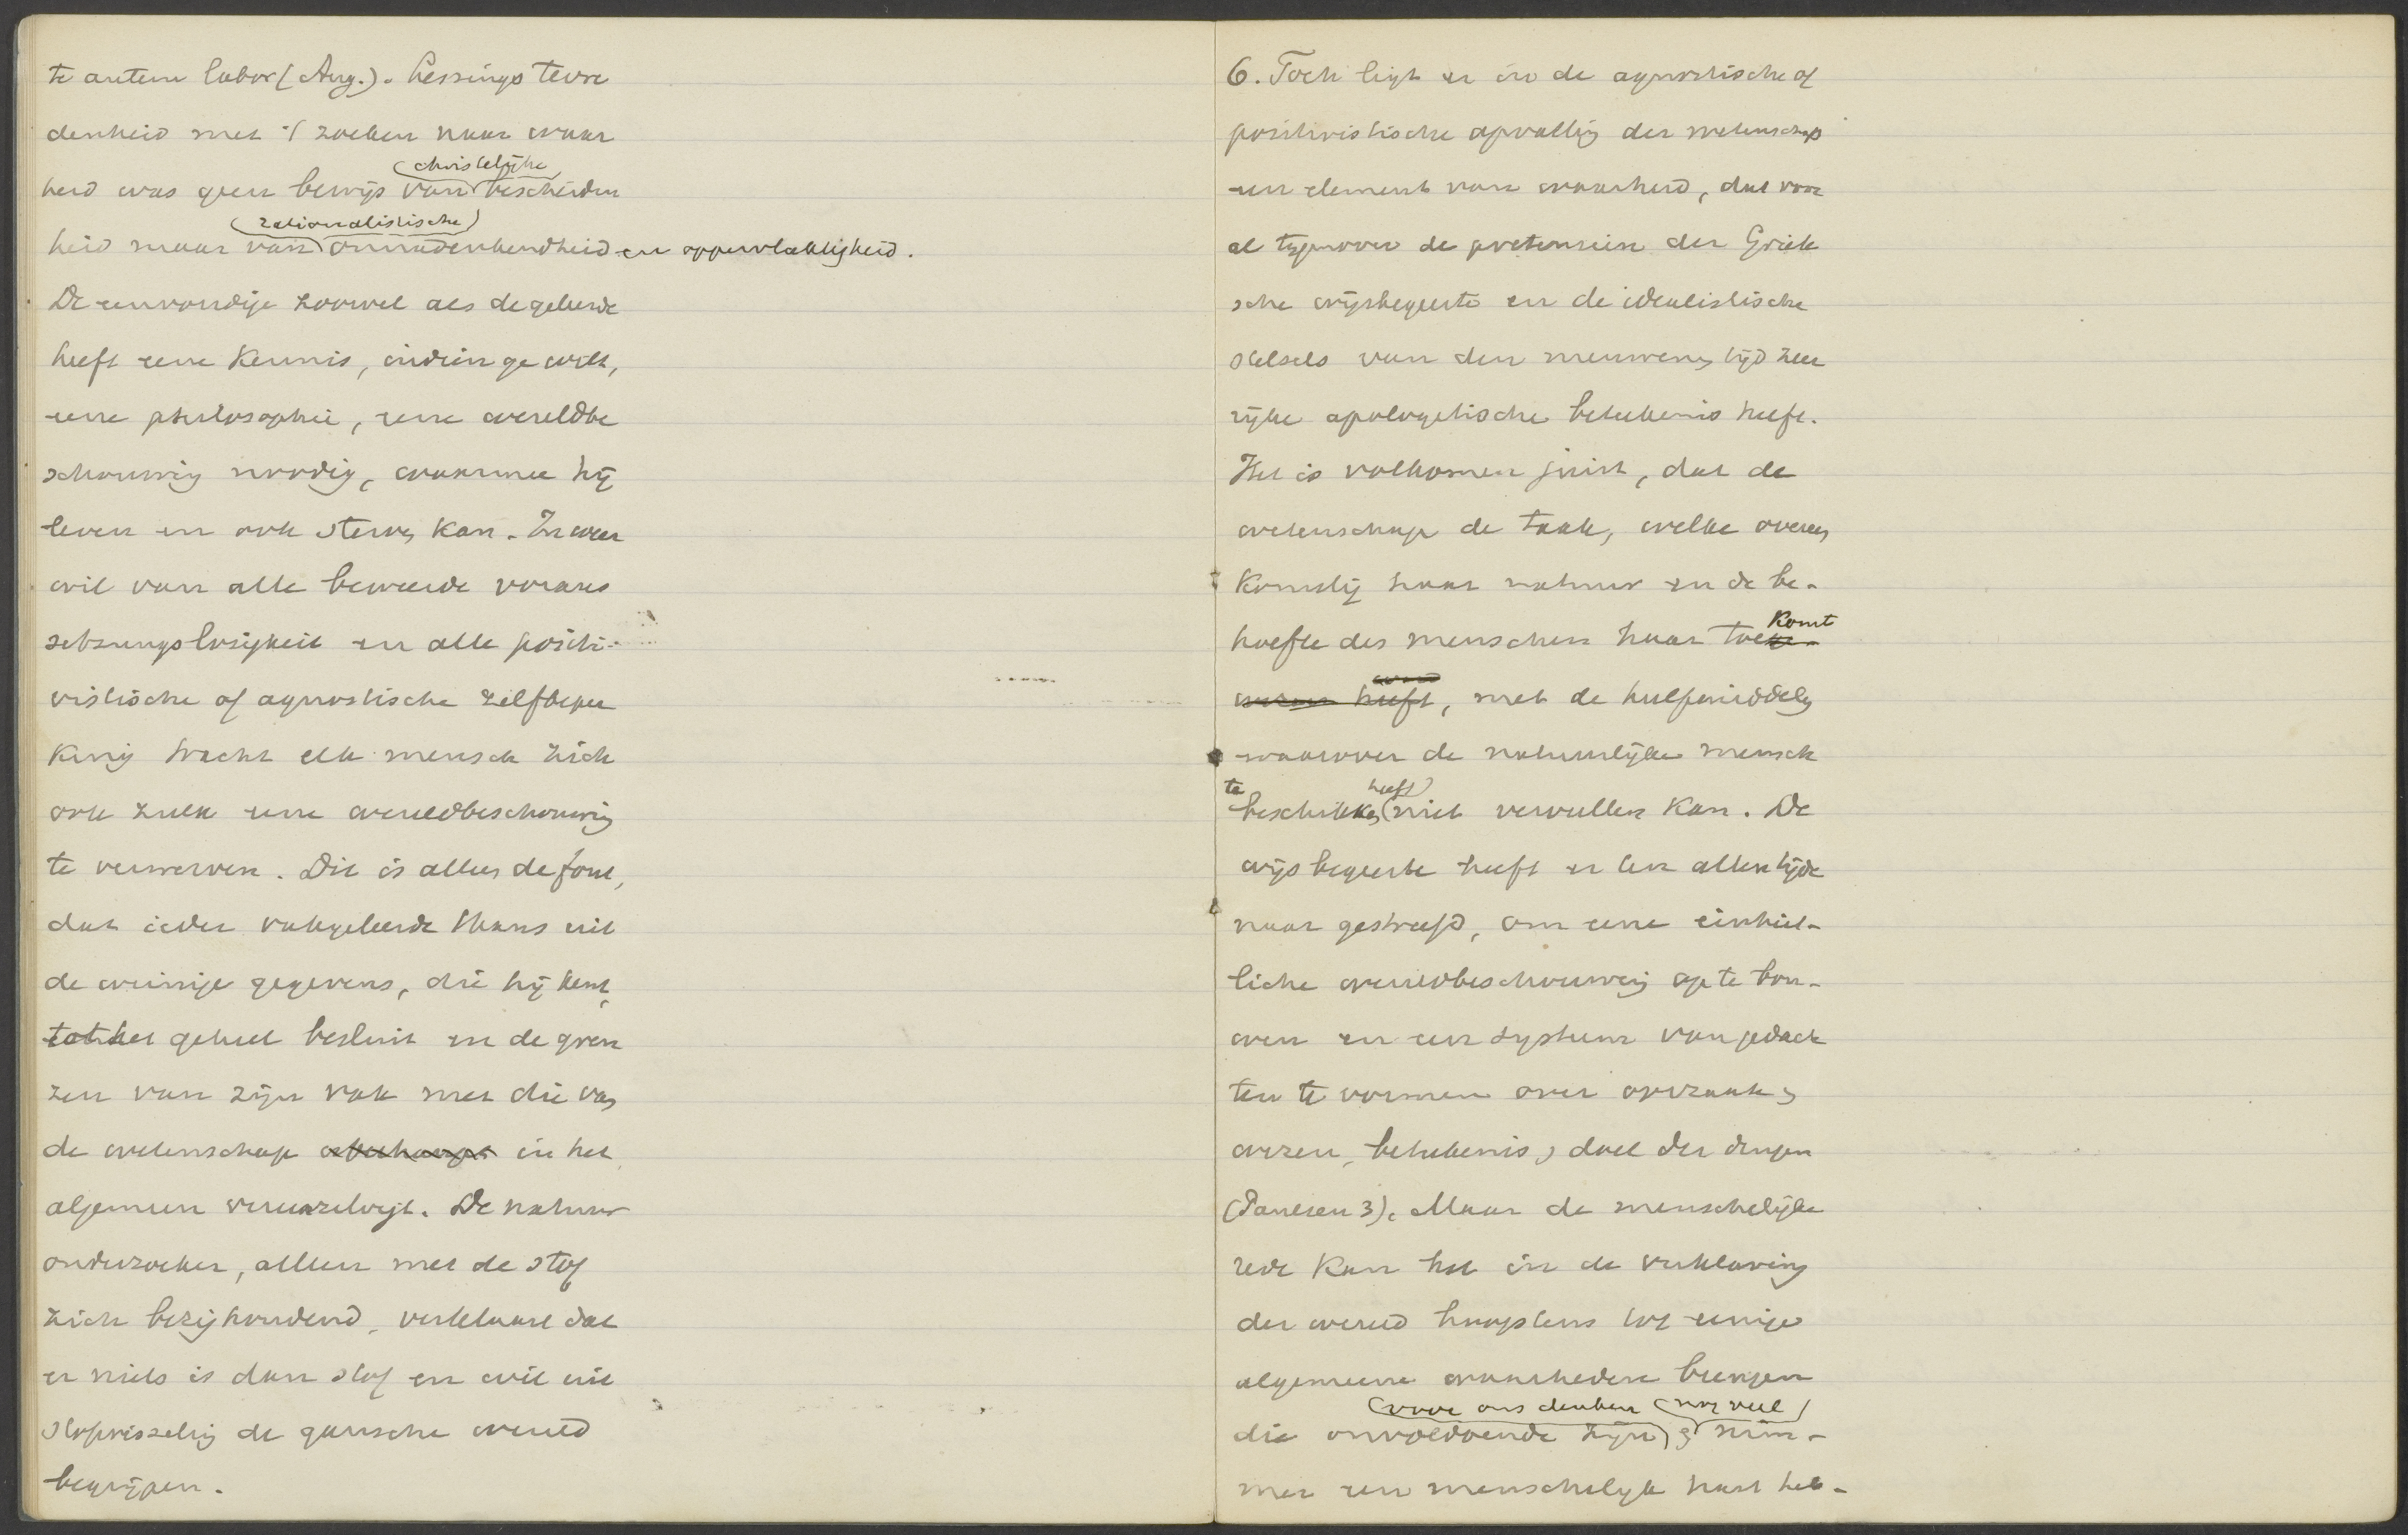 te autem labor (Aug.). Lessings tevre
denheid met 't zoeken naar waar
christelijke
heid was geen bewijs van bescheiden
rationalistische
heid maar van onnadenkendheid en oppervlakkigheid.
De eenvoudige zoowel als de geleerde
heeft eene kennis, indien ge wilt,
eene philosophie, eene wereldbe
schouwing noodig, waarmee hij
leven en ook sterven kan. In weer
wil van alle beweerde voraus
setzungslosigkeit en alle positi-
vistische of agnostische zelfbeper
king tracht elk mensch zich
ook zulk eene wereldbeschouwing
te verwerven. Dit is alleen de fout,
dat ieder vakgeleerde thans uit
de weinige gegevens, die hij kent,
tot het geheel besluit en de gren
zen van zijn vak met die van
de wetenschap in het
algemeen vereenzelvigt. De natuur
onderzoeker, alleen met de stof
zich bezighoudend, verklaart dat
er niets is dan stof en wil uit
stofwisseling de gansche wereld
begrijpen.
6. Toch ligt er in de agnostische of
positivistische opvatting der wetenschap
een element van waarheid, dat voor
al tegenover de pretensien der Griek
sche wijsbegeerte en de idealistische
stelsels van den nieuweren tijd zeer
rijke apologetische beteekenis heeft.
Het is volkomen juist, dat de
wetenschap de taak, welke overeen
komstig haar natuur en de be-
komt
hoefte des menschen haar toe
heeft, met de hulpmiddelen
waarover de natuurlijke mensch
te heeft
beschikken niet vervullen kan. De
wijsbegeerte heeft er ten allen tijde
naar gestreefd, om eene einheit-
liche wereldbeschouwing op te bou-
wen en een systeem van gedach
ten te vormen over oorzaak,
wezen, beteekenis, doel der dingen
(Paulsen 3). Maar de menschelijke
rede kan het in de verklaring
der wereld hoogstens tot eenige
algemeene waarheden brengen
voor ons denken nog veel
die onvoldoende zijn en nim-
mer een menschelijk hart heb-